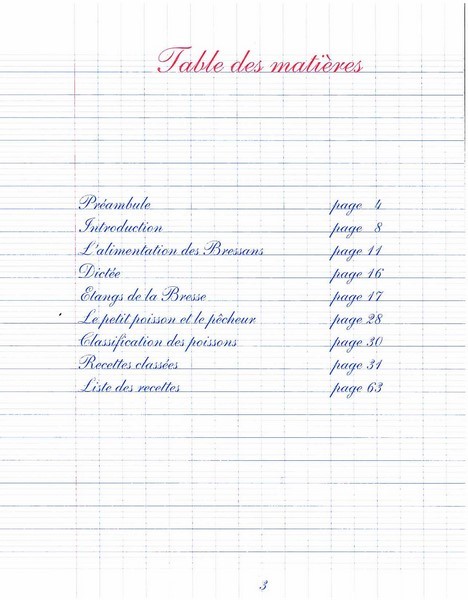 Table des matières
Préambule page 4
Introduction page 8
L'alimentation des Bressans page 11
Dictée page 16
Etangs de la Bresse page 17
Le petit poisson et le pêcheur page 28
Classification des poissons page 30
Recettes classées page 31
Liste des recettes page 63
3